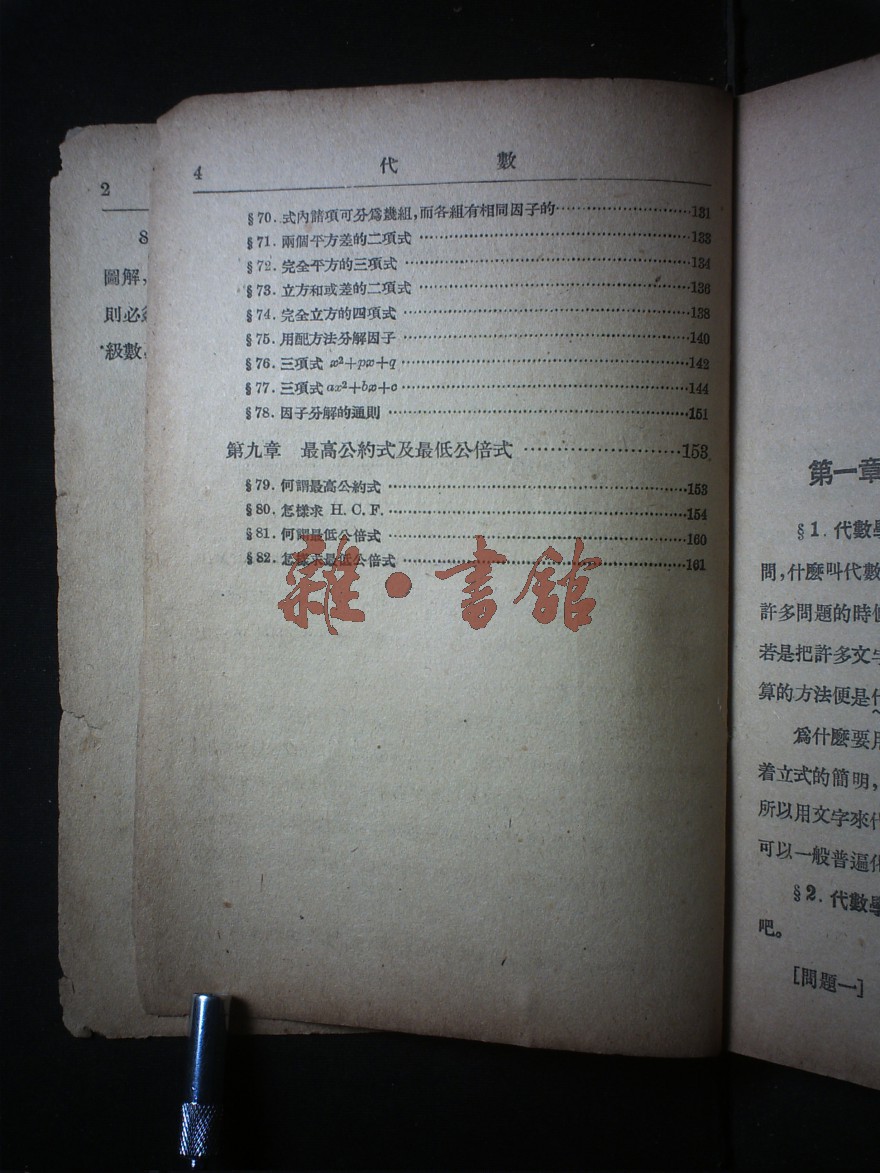 2
圖解,
則必
級數,
4 代 數
§70. 式內諸項可分爲幾組,而各組有相同因子的……131
§71. 兩個平方差的二項式……133
§72. 完全平方的三項式……134
§73. 立方和或差的二項式……136
§74. 完全立方的四項式……138
§75. 用配方法分解因子……140
§76. 三項式 x²+px+q……142
§77. 三項式 ax²+bx+c……144
§78. 因子分解的通則……151
第九章 最高公約式及最低公倍式……153
§79. 何謂最高公約式……153
§80. 怎樣求 H. C. F.……154
§81. 何謂最低公倍式……160
§82. 怎樣求最低公倍式……161
雜·書館
第一章
§1. 代數學
問,什麼叫代數
許多問題的時
若是把許多文字
算的方法便是
爲什麼要用
着立式的簡明,
所以用文字來代
可以一般普遍化
§2. 代數學
吧。
[問題一]